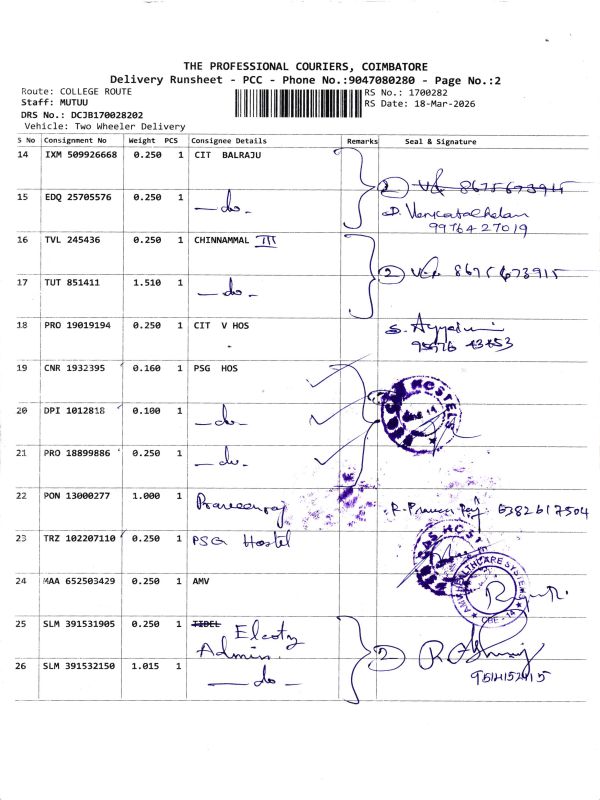 THE PROFESSIONAL COURIERS, COIMBATORE
Delivery Runsheet - PCC - Phone No.:9047080280 - Page No.:2
Route: COLLEGE ROUTE RS No.: 1700282
Staff: MUTUU RS Date: 18-Mar-2026
DRS No.: DCJB170028202
Vehicle: Two Wheeler Delivery
S No Consignment No Weight PCS Consignee Details Remarks Seal & Signature
14 IXM 509926668 0.250 1 CIT BALRAJU
2 8675673915
15 EDQ 25705576 0.250 1 — do -
D. Venkatachalam
9976427019
16 TVL 245436 0.250 1 CHINNAMMAL III
2 8675673915
17 TUT 851411 1.510 1 — do -
18 PRO 19019194 0.250 1 CIT V HOS
19 CNR 1932395 0.160 1 PSG HOS
20 DPI 1012818 0.100 1 — do -
21 PRO 18899886 0.250 1 — do -
22 PON 13000277 1.000 1 Praveenraj 6382617504
23 TRZ 102207110 0.250 1 PSG Hostel
24 MAA 652503429 0.250 1 AMV
25 SLM 391531905 0.250 1 TIDEL Elcotz
Admin.
26 SLM 391532150 1.015 1 — do — 2